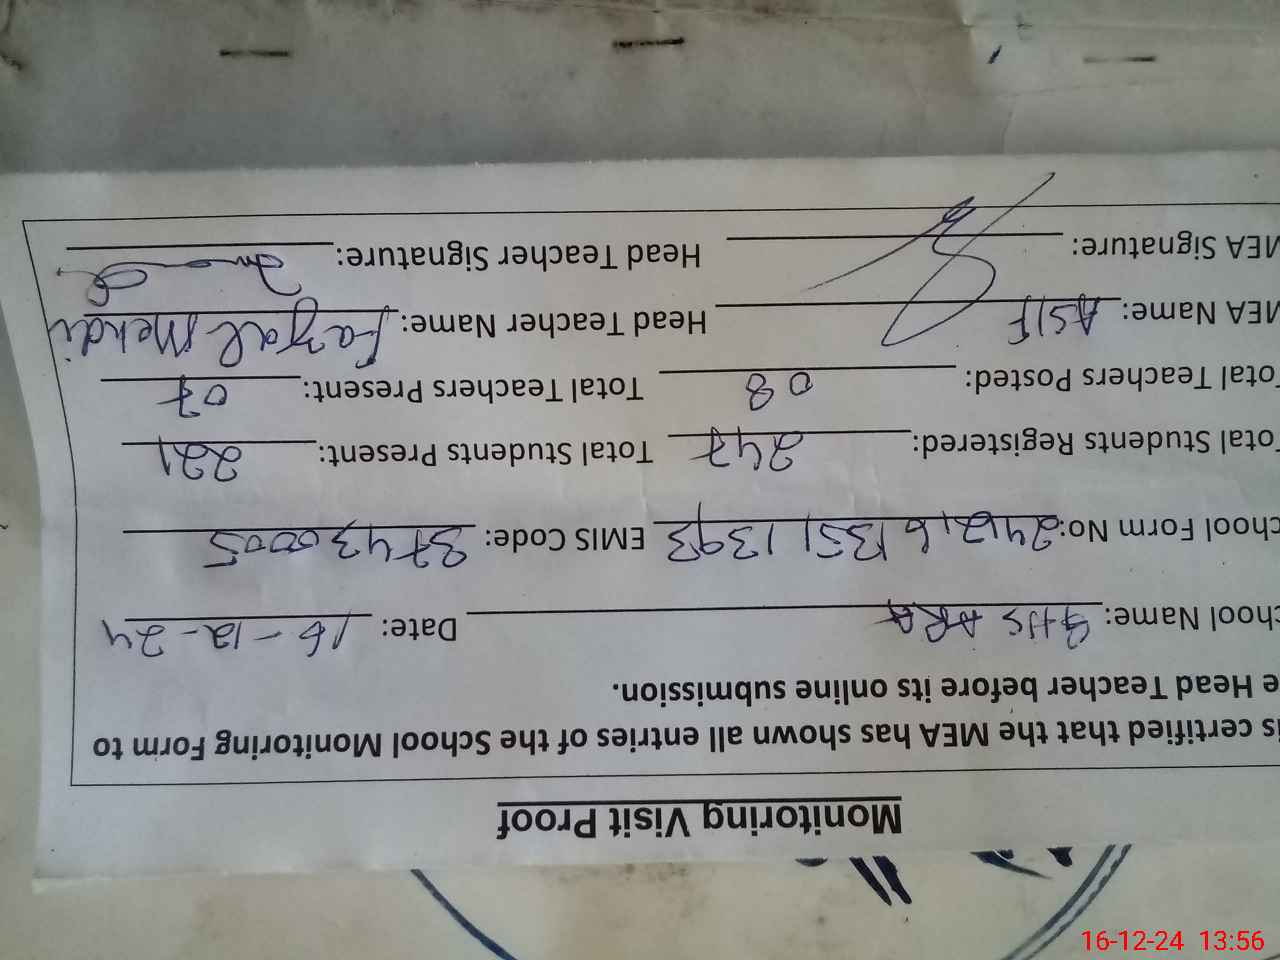 Monitoring Visit Proof
is certified that the MEA has shown all entries of the School Monitoring Form to
e Head Teacher before its online submission.
chool Name: GHS ARA Date: 16-12-24
chool Form No: EMIS Code: 37430005
otal Students Registered: 247 Total Students Present: 221
otal Teachers Posted: 08 Total Teachers Present: 07
MEA Name: ASIF Head Teacher Name: Fazal Mehdi
MEA Signature: Head Teacher Signature:
16-12-24 13:56